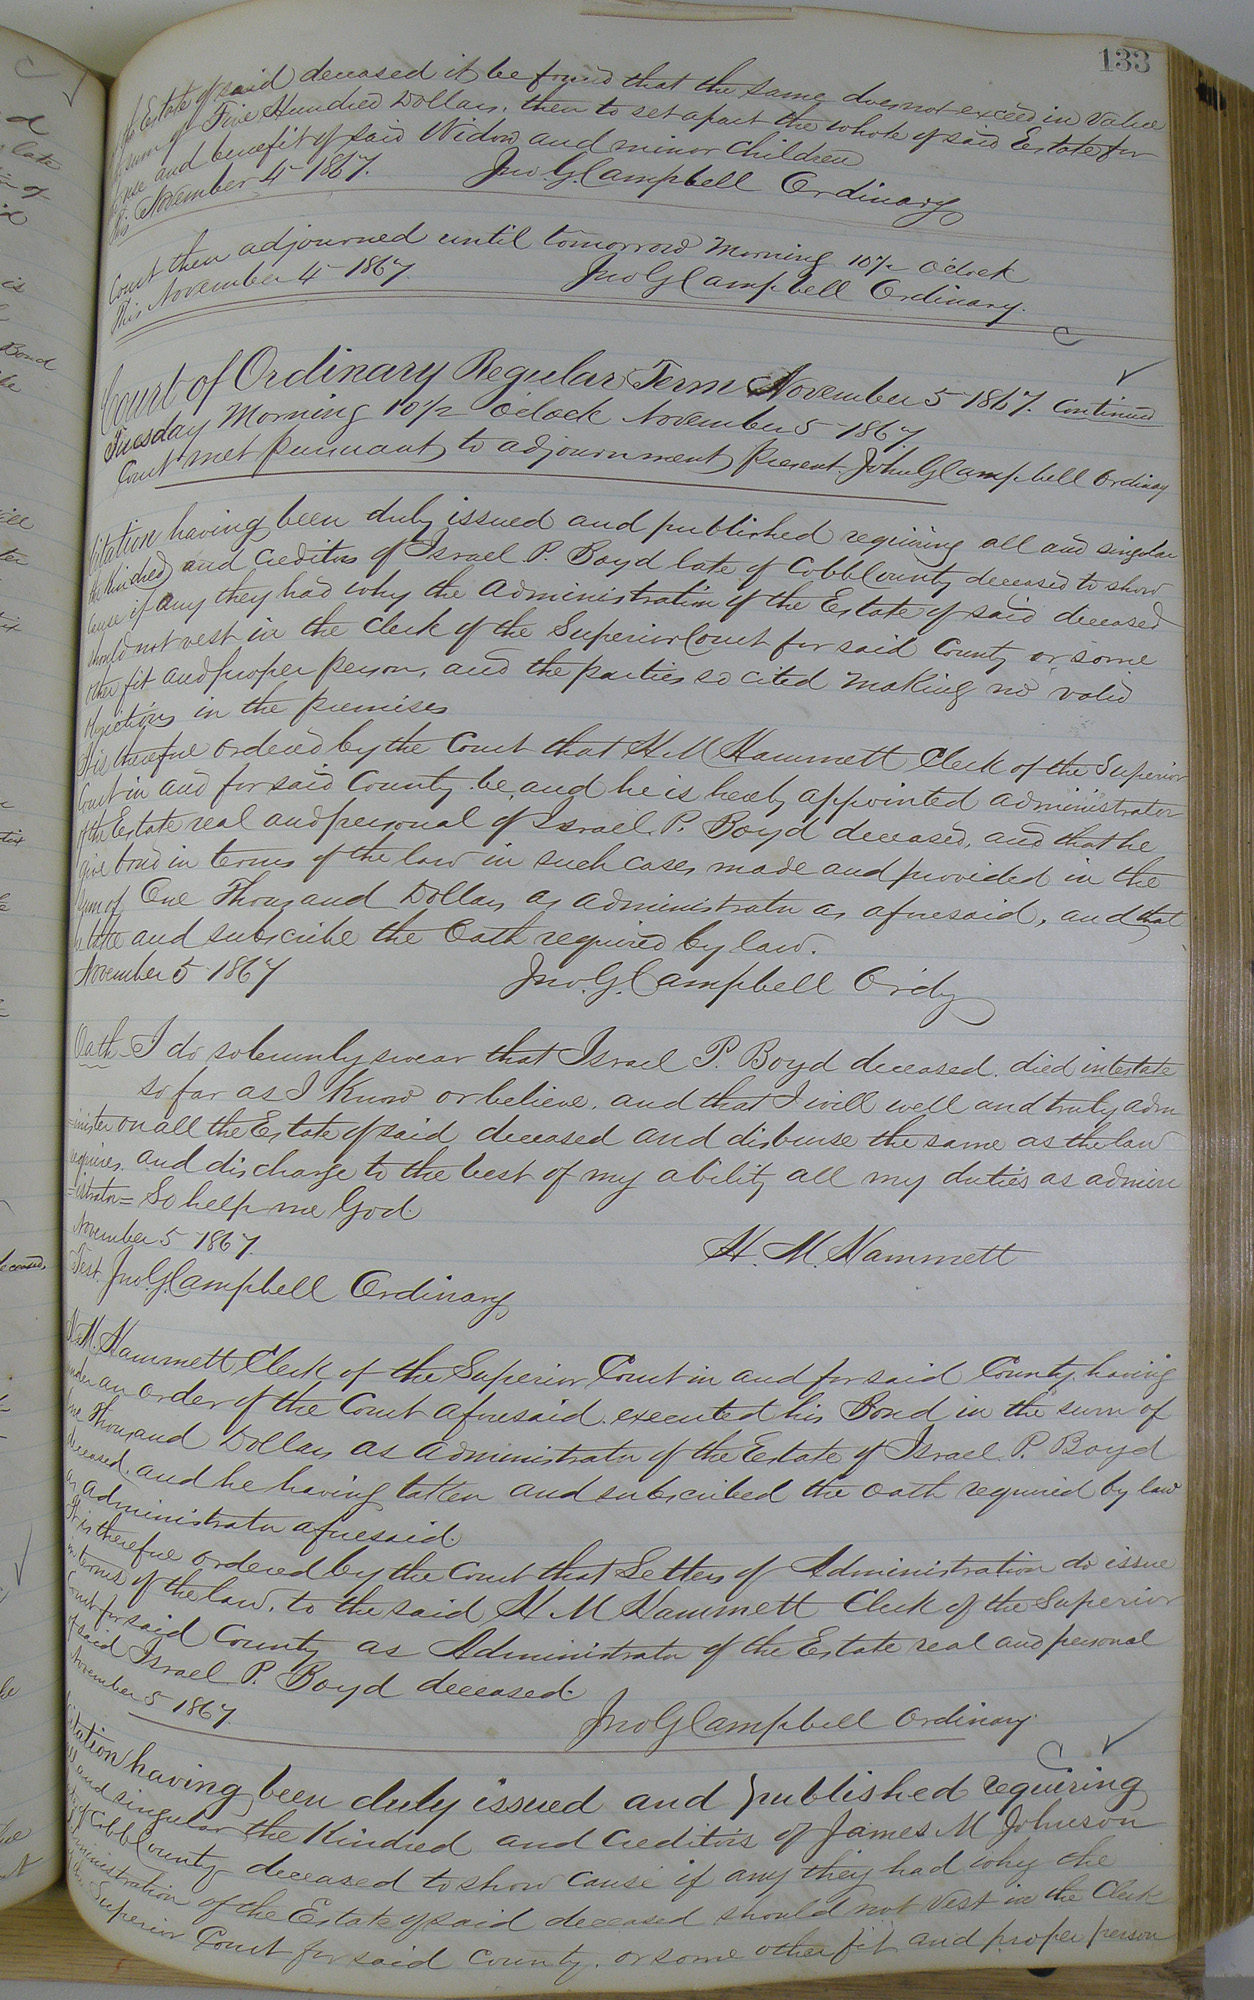 133
of the Estate of said deceased it be found that the same does not exceed in value
the sum of Five Hundred Dollars, then to set apart the whole of said Estate for
the use and benefit of said Widow and minor Children
This November 4 - 1867. Jno. G. Campbell Ordinary
Court then adjourned until tomorrow Morning 10½ Oclock
This November 4 - 1867. Jno G Campbell Ordinary.
Court of Ordinary Regular Term November 5 1867. Continued
Tuesday Morning 10½ Oclock November 5 - 1867.
Court met pursuant to adjournment, Present John G Campbell Ordinary
Citation having been duly issued and published requiring all and singular
the Kindred and Creditors of Israel P. Boyd late of Cobb County deceased to show
cause if any they had why the administration of the Estate of said deceased
should not vest in the Clerk of the Superior Court for said County or some
other fit and proper person, and the parties so cited making no valid
objections in the premises
It is therefore ordered by the Court that H M Hammett Clerk of the Superior
Court in and for said County be, and he is hereby appointed administrator
of the Estate real and personal of Israel P. Boyd deceased, and that he
give bond in terms of the law in such cases made and provided in the
Sum of One Thousand Dollars as administrator as aforesaid, and that
he take and subscribe the Oath required by law.
November 5 1867 Jno. G. Campbell Ordy
Oath - I do solemnly swear that Israel P. Boyd deceased, died intestate
so far as I know or believe, and that I will well and truly adm
=inister on all the Estate of said deceased and disburse the same as the law
requires, and discharge to the best of my ability all my duties as admin
=istrator= So help me God.
November 5 1867. H. M. Hammett
Test. Jno. G. Campbell Ordinary
H. M. Hammett Clerk of the Superior Court in and for said County, having
under an order of the Court aforesaid, executed his Bond in the sum of
One Thousand Dollars as administrator of the Estate of Israel P. Boyd
deceased, and he having taken and subscribed the oath required by law
as administrator aforesaid.
It is therefore ordered by the Court that Letters of Administration do issue
in terms of the law, to the said H M Hammett Clerk of the Superior
Court for said County as Administrator of the Estate real and personal
of said Israel P. Boyd deceased.
November 5 1867. Jno G Campbell Ordinary.
Citation having been duly issued and published requiring
all and singular the Kindred and Creditors of James M Johnson
late of Cobb County deceased to show cause if any they had why the
administration of the Estate of said deceased should not vest in the Clerk
Superior Court for said County, or some other fit and proper person